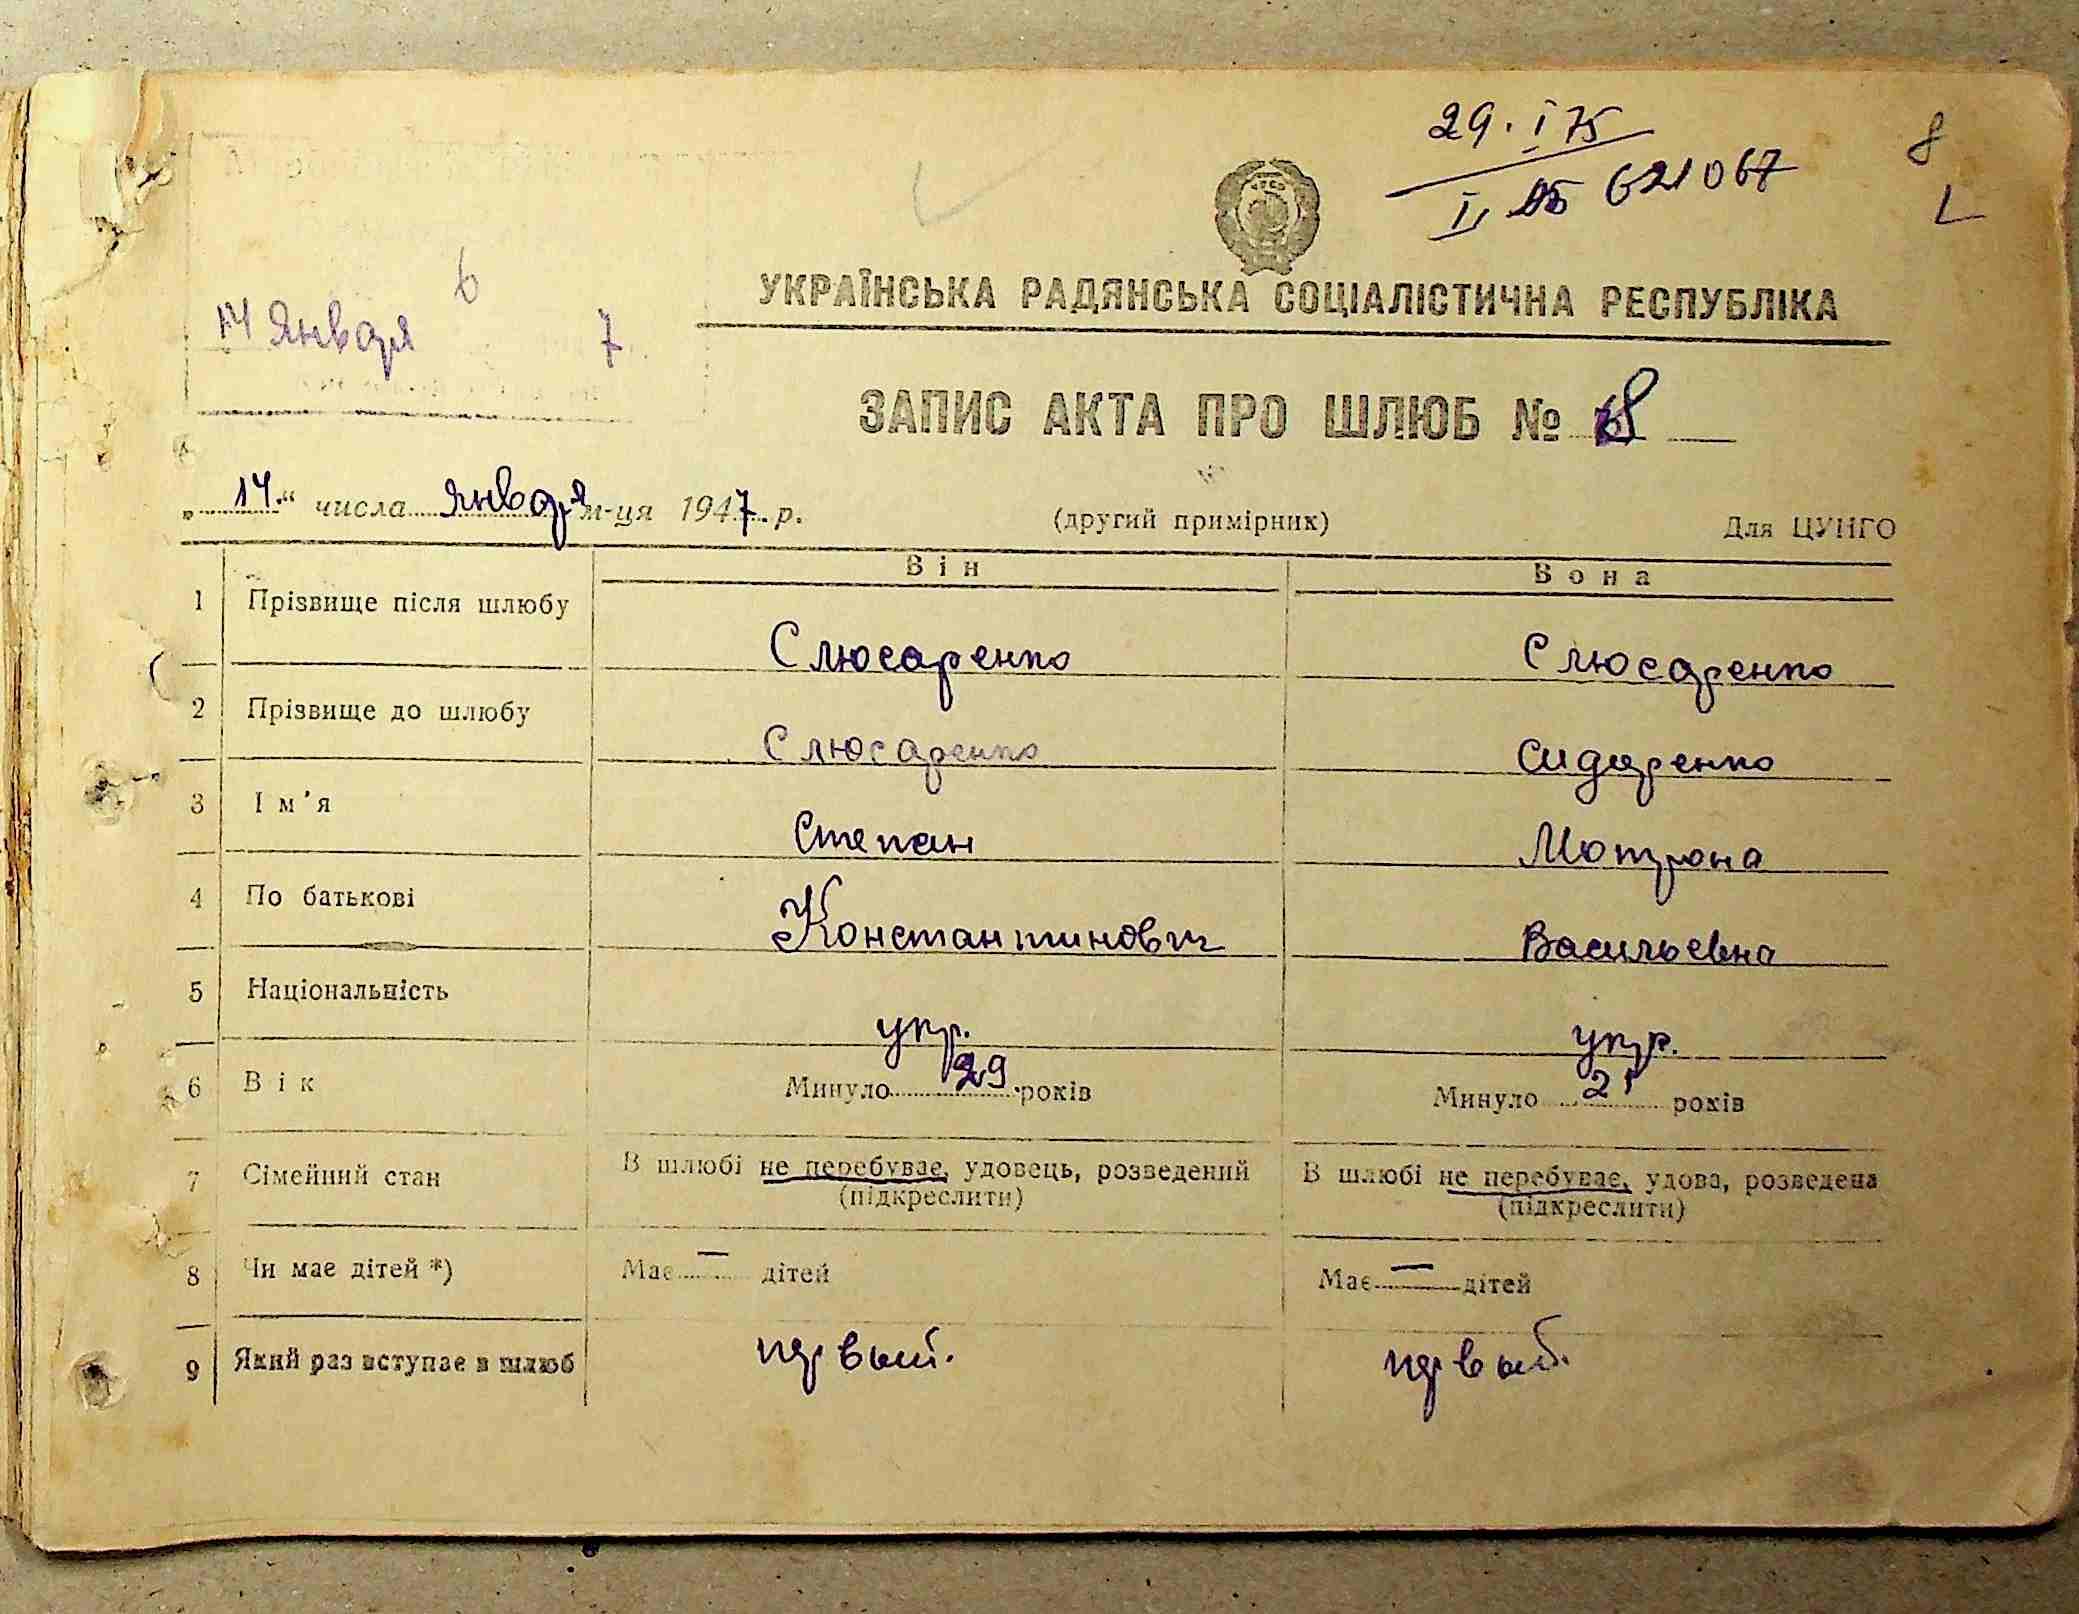 29. I 75
8
I, 621067
L
УКРАЇНСЬКА РАДЯНСЬКА СОЦІАЛІСТИЧНА РЕСПУБЛІКА
6
14 Января 7
ЗАПИС АКТА ПРО ШЛЮБ № 8
„14“ числа Января м-ця 1947 р.
(другий примірник)
Для ЦУНГО
Він Вона
1 Прізвище після шлюбу Слюсаренко Слюсаренко
2 Прізвище до шлюбу Слюсаренко Сидоренко
3 Ім’я Степан Мотрона
4 По батькові Константинович Васильевна
5 Національність укр. укр.
6 Вік Минуло 29 років Минуло 21 років
7 Сімейний стан В шлюбі не перебуває, удовець, розведений В шлюбі не перебуває, удова, розведена
(підкреслити) (підкреслити)
8 Чи має дітей *) Має — дітей Має — дітей
9 Який раз вступає в шлюб первый. первый.